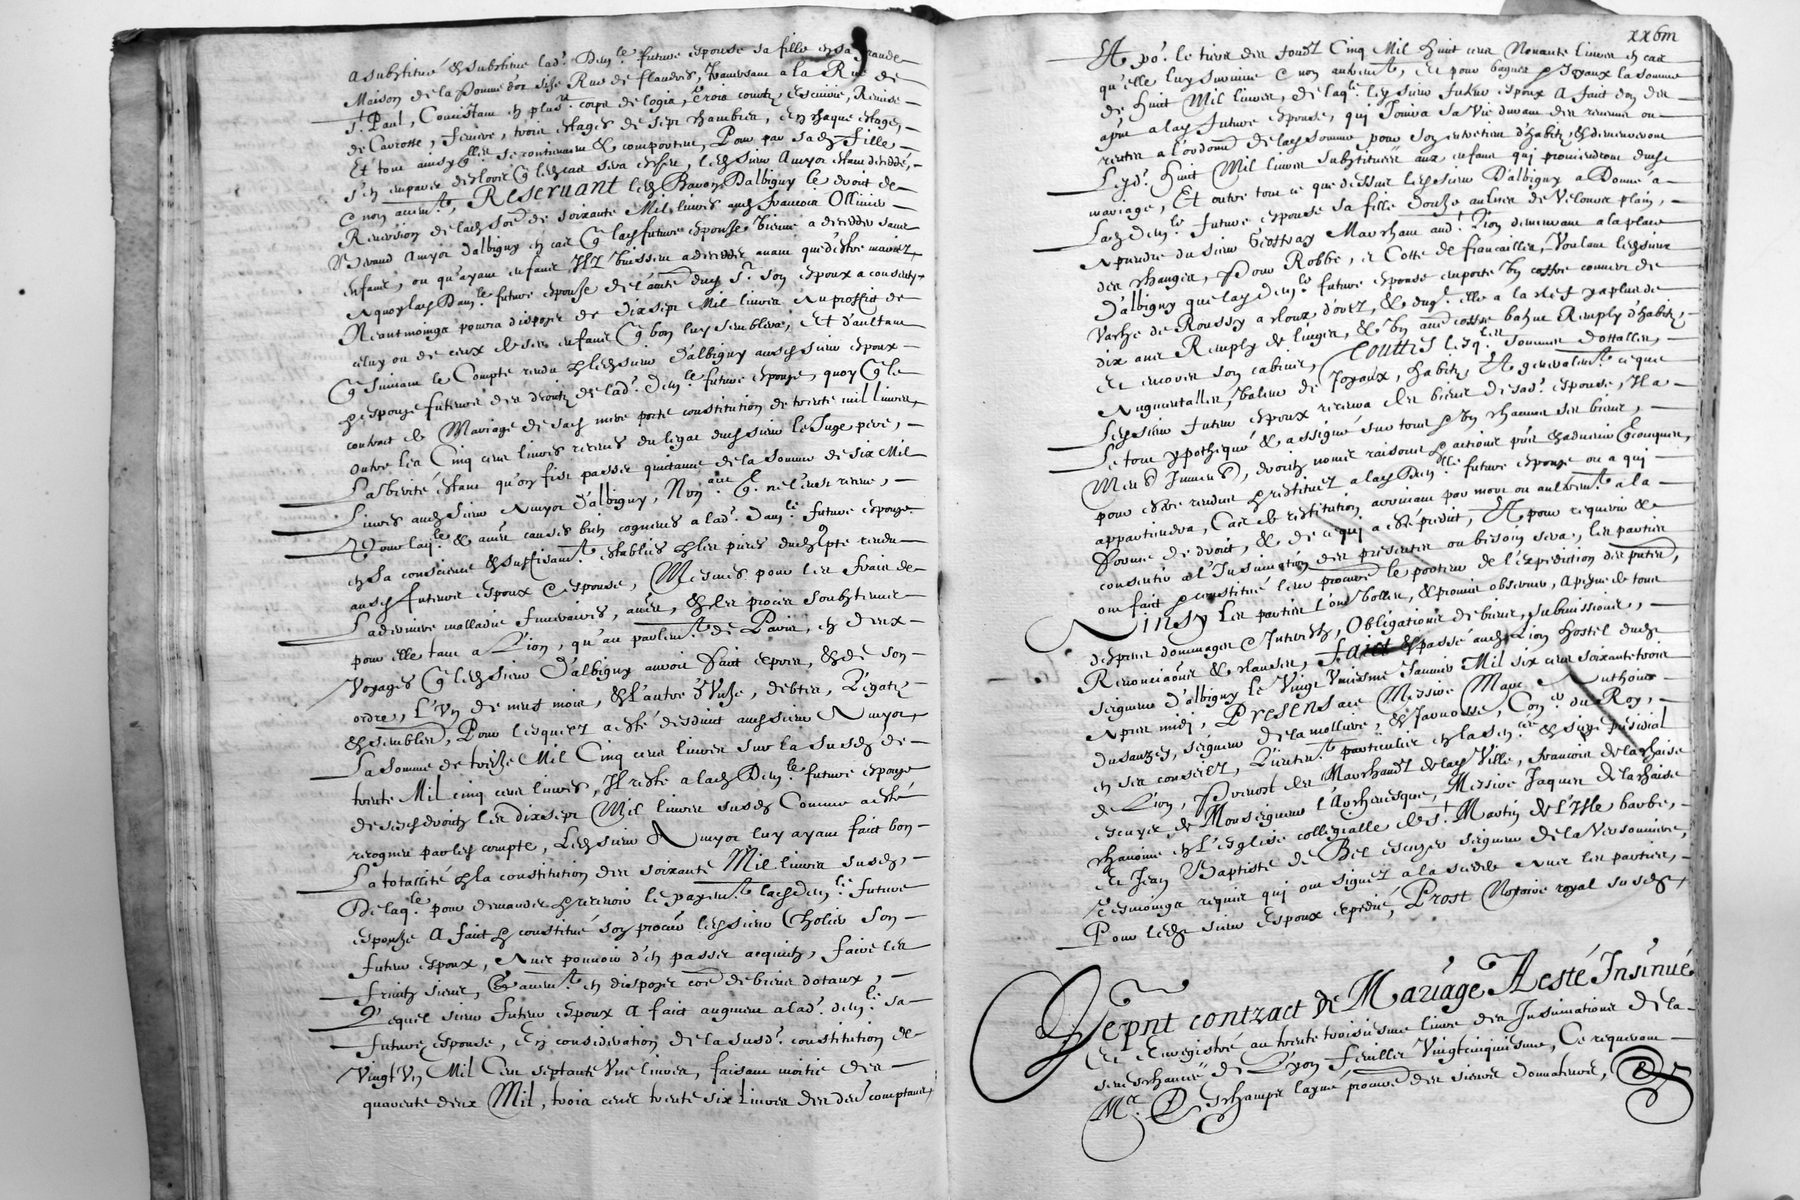 a substitué & substitue lad. Dem.le future espouse sa fille en sa grande
Maison de la Pomme d'or sise Rue de flandres, traversant a la Rue de
St. Paul, Consistant en plus.rs corps de logis, trois courtz, escuirie, Remise
de Carrosse, feniere, trois estages de sept chambres, en chaque estage,
Et tout ainsy q elles se contiennent & comportent, Pour par sad. fille
s'en emparer deslors q led. cas sera escheu, led. sieur Amyot estant decedé,
& non autrem.t, Reservant led. Baron d'albigny le droit de
Reversion de lad. so.e de soixante Mil livres aud. françois Ollivier
Benaud Amyot d'albigny en cas q lad. future espouse vienne a deceder sans
enfans, ou qu'ayant enfans ilz vinssent a deceder avant que d'estre mariez,
A quoy lad. Dam.le future espouse de l'autté dud. s.r son espoux a consenty,
Neantmoings pourra disposer de dix sept Mil livres Au proffict de
celuy ou de ceux de ses enfans q bon luy semblera, Et d'aultant
q suivant le Compte rendu p led. sieur d'albigny ausd. sieur espoux
& espouse futurs des droitz de lad. Dem.le future espouse, quoy q le
contract de Mariage de sad. mere porte constitution de trente mil livres,
outre les Cinq cens livres receues du legat dud. sieur le Juge pere,
La verité estant qu'on fist passer quittance de la somme de six Mil
Livres aud. sieur Amyot d'albigny, Non q ne l'eust receue,
Pour laq.le & autres causes bien cogneues a lad. Dam.le future espouse
en sa conscience & suffisam.t establies p les pieces dud. Compte rendu
ausd. futurs espoux & espouse, Mesmes pour les frais de
La derniere malladie funeraires, autres, & les procès soubstenus
pour elle tant a Lion, qu'au parlem.t de Paris, en deux
Voyages q led. sieur d'albigny auroit faict exprès, & de son
ordre, L'un de neuf mois, & l'autre d'Unze, debtes, Legatz
& semblés, Pour lesquelz a esté desduit aud. sieur Amyot,
La somme de treize Mil Cinq cens livres sur la susd. de
trente Mil cinq cens livres, Il reste a lad. Dem.le future espouse
de sesd. droitz les dix sept Mil livres susd. Comme a esté
recogneu par led. compte, Led. sieur Amyot luy ayant faict bon
La totallité p la constitution des soixante Mil livres susd.,
De laq.le pour demander & recevoir le payem.t lad. dem.le future
espouse A fait & constitué son procur. led. sieur Cholier son
futur espoux, Avec pouvoir d'en passer acquitz, faire les
fruitz siens, & autrem.t en disposer co.e de biens dotaux,
Lequel sieur futur espoux A fait augment a lad. dem.le sa
future espouse, En consideration de la susd. constitution de
Vingt Un Mil Cent septante Une livres, faisant moitié des
quarente deux Mil, trois cens trente six Livres des den. comptant,
xxbIII
Et po. le tiers des fondz Cinq Mil huit cens Nonante livres en cas
qu'elle luy survive & non autrem.t, Et pour bagues & Joyaux la somme
de huit Mil livres, de laq.le led. sieur futur espoux A fait don des
apnt a lad. future espouse, qui Jouira sa Vie durant des revenus ou
rentes a l'ordonn.e de lad. somme pour son entretien d'habitz, & demeureront
Lesd. huit Mil livres substituées aux enfans qui proviendront dud.
mariage, Et outre tout ce que dessus led. sieur D'albigny a Donné a
Lad. Dem.le future espouse sa fille douze aulnes de Velours plain,
A prendre du sieur Geoffray Marchand aud. Lion demeurant a la place
des changes, Pour Robbe, & Cotte de fiancailles, Voulant led. sieur
D'albigny que lad. Dem.le future espouse emporte un coffre couvert de
Vache de Roussy a cloux dorez, & duq.l elle a la clef y a plus de
dix ans Remply de linges, & un autre coffre bahut Remply d'habitz,
Et encores son cabinet, Touttes lesq.lles sommes dottalles,
Augmentalles, valeur de Joyaux, habitz, Et gerallem.t ce que
Led. sieur futur espoux recevra des biens de sad. espouse, Il a
Le tout ypothequé & assigné sur tous & un chacuns ses biens,
Meub. Immeub., droitz noms raisons & actions pnts & advenir q.conques,
pour estre rendus & restituez a lad. Dem.lle future espouse ou a qui
appartiendra, Cas de restitution arrivant par mort ou aultrem.t a la
forme de droit, & de ce qui a esté predit, Et pour requerir &
consentir a l'Insinuation des presentes ou besoin sera, les parties
ont fait & constitué leur procur. le porteur de l'expedition des pntes,
Ainsy Les parties l'ont Voullu, & promis observer, A peyne de tous
despens dommages & Interestz, Obligations de biens, submissions,
Renonciations & clauses, faict & passé aud. Lion hostel dud.
seigneur d'albigny le Vingt Uniesme Janvier Mil six cens soixante trois
Apres midy, Presens ace Messire Marc Anthoine
du sauzey, seigneur de la molliere, & Jarnosse, Con.er du Roy,
en ses conseilz, Lieuten.t particulier en la sen.cée & siege presidial
de Lion, Prevost des Marchandz de lad. Ville, françois de la chaise
escuyer de Monseigneur l'Archevesque, Messire Jaques de la chaise
chanoine en l'Esglise collegialle de St. Martin de L'Isle barbe,
Et Jean Baptiste de Bel escuyer seigneur de la Versonniere,
Tesmoings requis qui ont signez a la scedde Avec les parties,
Pour led. sieur Espoux expedié, Prost Notaire royal susd.
Le pnt contract de Mariage A esté Insinué
Et Enregistré au trente troisiesme livre des Insinuations de la
seneschaucée de Lyon feuillet Vingtcinquiesme, Ce requerant
M.e Deschamps laisné procur. des sieurs donnateurs,